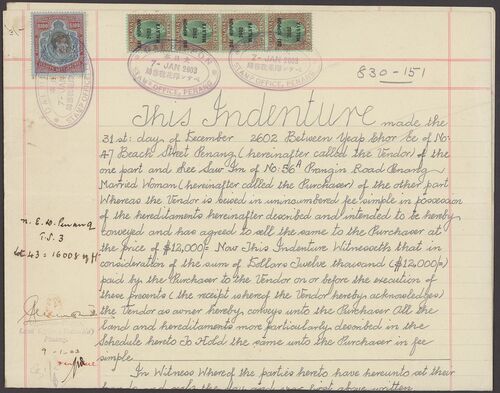 7-JAN 2603
STAMP OFFICE, PENANG
7-JAN 2603
STAMP OFFICE, PENANG
830-151
This Indenture made the
31st: day of December 2602 Between Yeap Chor Ee of No:
47 Beach Street Penang (hereinafter called the Vendor) of the
one part and Saw Im of No: 56A Prangin Road Penang
Married Woman (hereinafter called the Purchaser) of the other part
Whereas the Vendor is seised in unincumbered fee simple in possession
of the hereditaments hereinafter described and intended to be hereby
conveyed and has agreed to sell the same to the Purchaser at
the price of $12,000/- Now This Indenture Witnesseth that in
consideration of the sum of Dollars Twelve thousand ($12,000/-)
paid by the Purchaser to the Vendor on or before the execution of
these presents (the receipt whereof the Vendor hereby acknowledges)
the Vendor as owner hereby conveys unto the Purchaser All the
land and hereditaments more particularly described in the
Schedule hereto To Hold the same unto the Purchaser in fee
simple
In Witness Whereof the parties hereto have hereunto set their
hands and seals the day and year first above written
N. E. D. Penang
T.S. 3
Lot 43 = 16008 sq ft
Penang
9-1-03